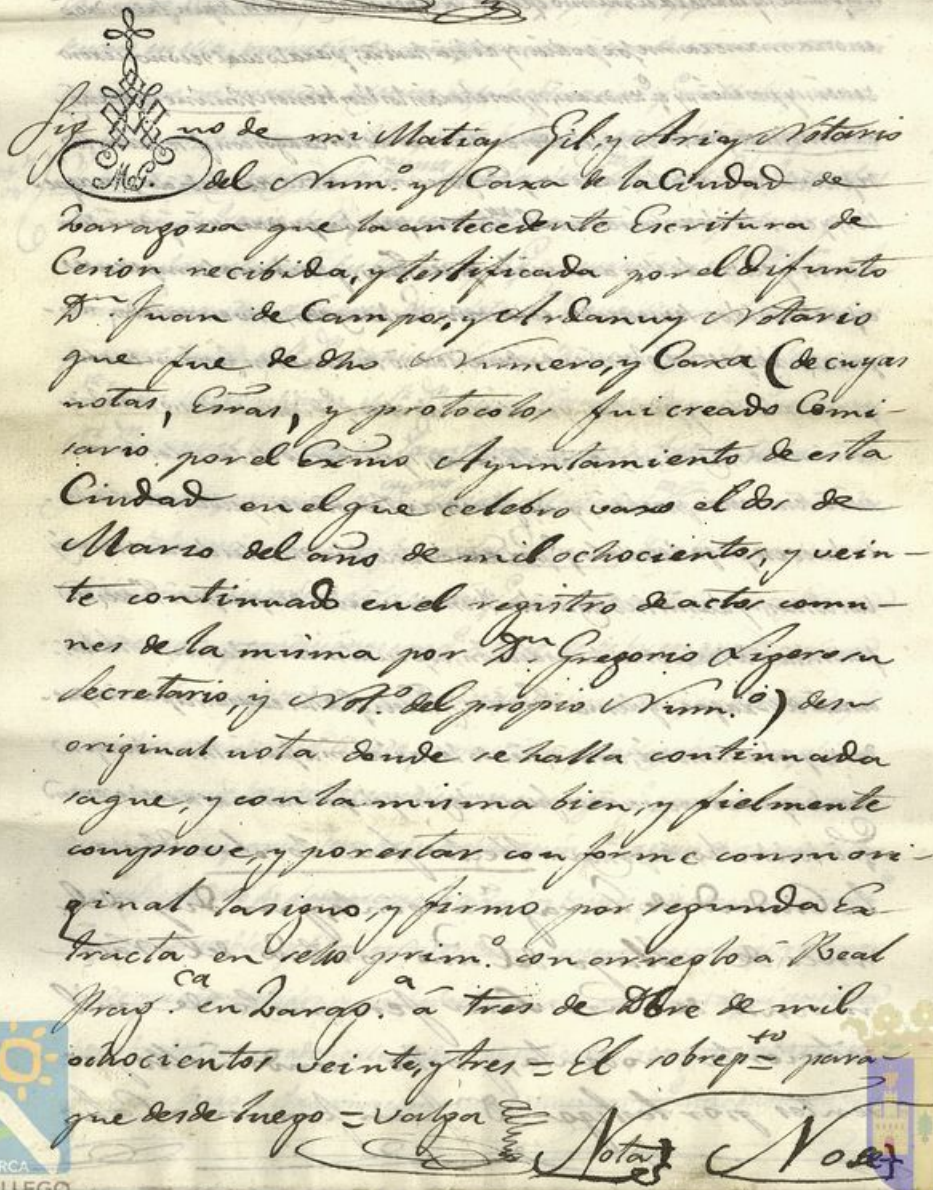 Sig no de mi Matias Gil, y Arias Notario
M.G. del Num.º y Caxa de la Ciudad de
Zaragoza que la antecedente Escritura de
Cesion recibida, y testificada por el difunto
D.n Juan de Campos, y Ardanuy Notario
que fue de dho Numero, y Caxa (de cuyas
notas, Esras, y protocolos fui creado Comi-
sario por el Exmo Ayuntamiento de esta
Ciudad en el que celebro vaxo el dos de
Marzo del año de mil ochocientos, y vein-
te continuado en el registro de actos comu-
nes de la misma por D.n Gregorio Ligero su
Secretario, y Not.º del propio Num.º) de su
original nota donde se halla continuada
saque, y con la misma bien, y fielmente
comprove, y por estar conforme con su ori-
ginal la signo, y firmo por segunda Ex-
tracta en sello prim.º con arreglo á Real
Prag.ca en Zarag.a á tres de Dbre de mil
ochocientos veinte, y tres = El sobrep.to = para
que desde luego = valga
Nota No se
RCA
LLEGO